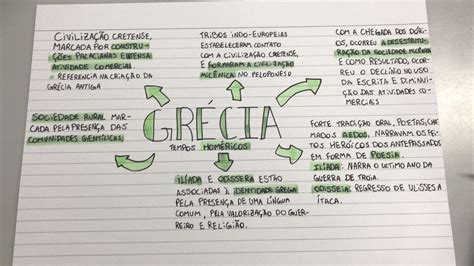 CIVILIZAÇÃO CRETENSE,
MARCADA POR CONSTRU-
ÇÕES PALACIANAS E INTENSA
ATIVIDADE COMERCIAL
• REFERENCIA NA CRIAÇÃO DA
GRÉCIA ANTIGA
TRIBOS INDO-EUROPEIAS
ESTABELECERAM CONTATO
COM A CIVILIZAÇÃO CRETENSE,
E FORMARAM A CIVILIZAÇÃO
MICÊNICA NO PELOPONESO
COM A CHEGADA DOS DÓRI-
OS, OCORREU A DESESTRUTU-
RAÇÃO DA SOCIEDADE MICÊNICA
E COMO RESULTADO, OCOR-
REU O DECLÍNIO NO USO
DA ESCRITA E DIMINUI-
ÇÃO DAS ATIVIDADES CO-
MERCIAIS
SOCIEDADE RURAL MAR-
CADA PELA PRESENÇA DAS
COMUNIDADES GENTÍLICAS
GRÉCIA
TEMPOS HOMÉRICOS
FORTE TRADIÇÃO ORAL, POETAS, CHA-
MADOS AEDOS, NARRAVAM OS FE-
ITOS HEROICOS DOS ANTEPASSADOS
EM FORMA DE POESIA.
ILÍADA: NARRA O ULTIMO ANO DA
GUERRA DE TROIA.
ODISSEIA: REGRESSO DE ULISSES A
ÍTACA.
ILÍADA E ODISSEIA ESTÃO
ASSOCIADAS À IDENTIDADE GREGA
PELA PRESENÇA DE UMA LÍNGUA
COMUM, PELA VALORIZAÇÃO DO GUER-
REIRO E RELIGIÃO.